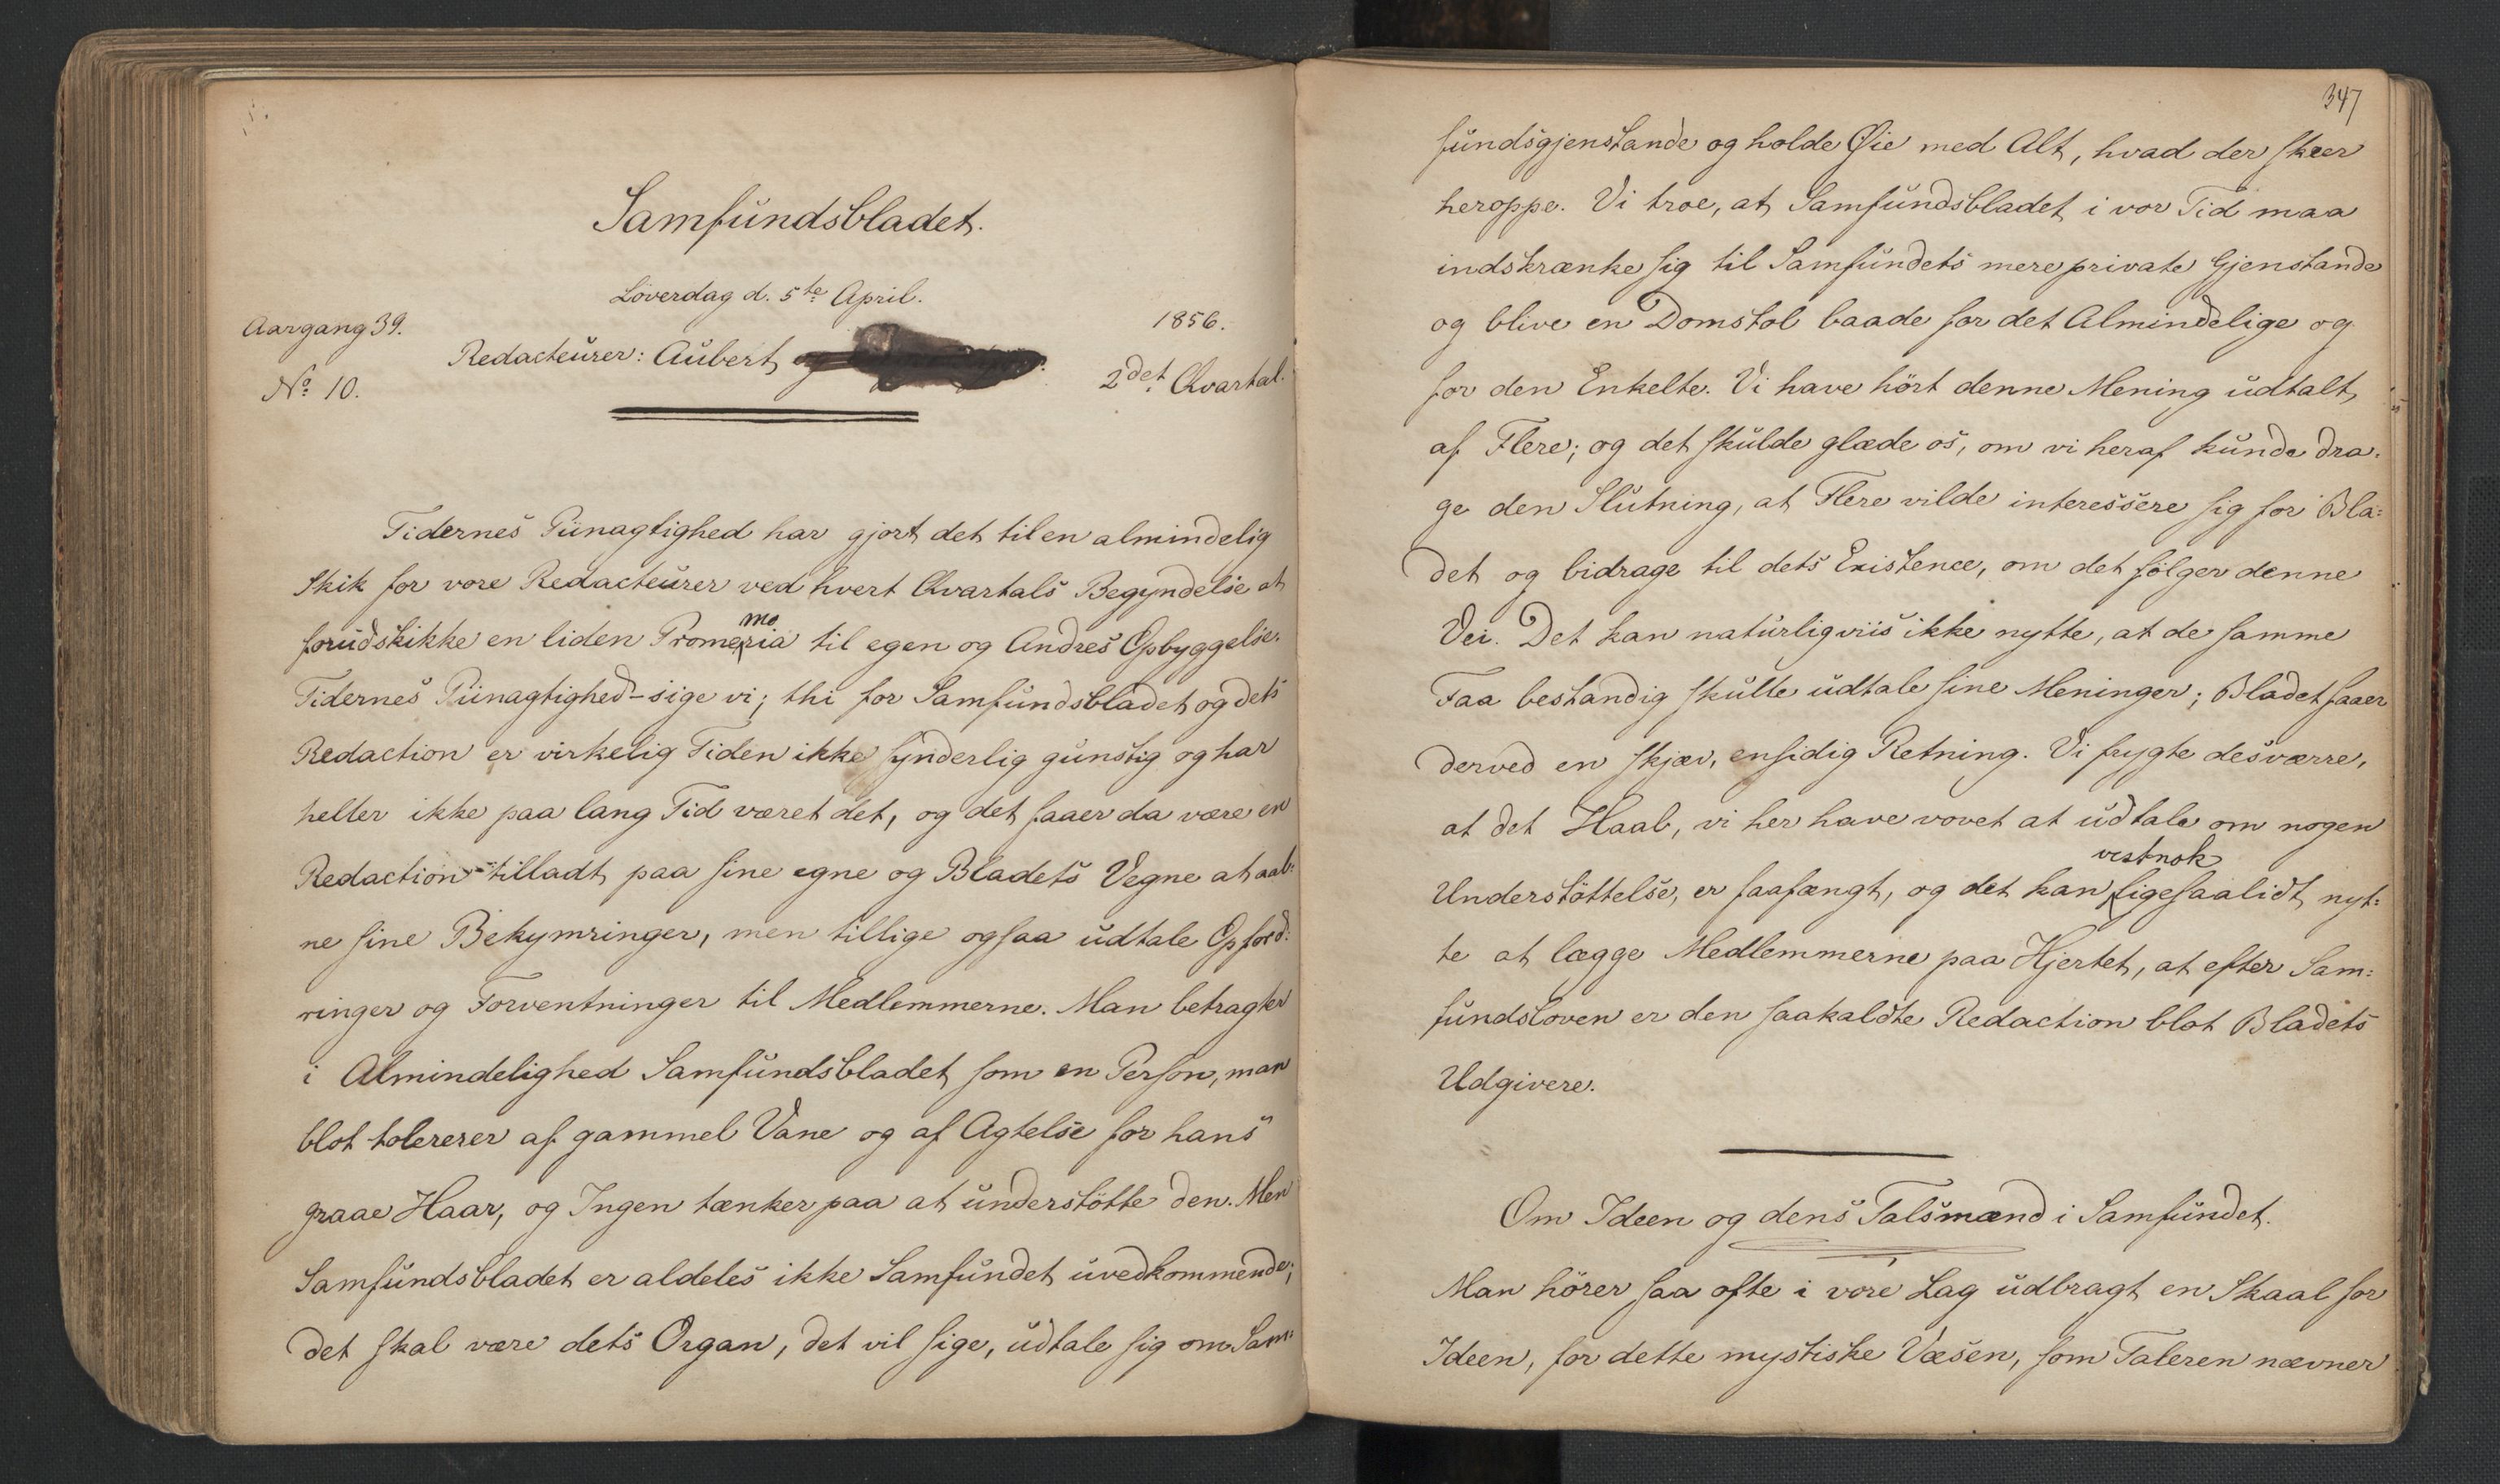 Samfundsbladet.
Löverdag d. 5te April.
Aargang 39.
1856.
Redacteurer: Aubert og
No 10.
2det Qvartal.
Tidernes Piinagtighed har gjort det til en almindelig
Skik for vore Redacteurer ved hvert Qvartals Begyndelse at
forudskikke en liden Promemoria til egen og Andres Opbyggelse.
Tidernes Piinagtighed - sige vi; thi for Samfundsbladet og dets
Redaction er virkelig Tiden ikke synderlig gunstig og har
heller ikke paa lang Tid været det, og det faaer da være en
Redaction tilladt paa sine egne og Bladets Vegne at aab-
ne sine Bekymringer, men tillige ogsaa udtale Opford-
ringer og Forventninger til Medlemmerne. Man betragter
i Almindelighed Samfundsbladet som en Person, man
blot tolererer af gammel Vane og af Agtelse for hans
graae Haar, og Ingen tænker paa at understötte den. Men
Samfundsbladet er aldeles ikke Samfundet uvedkommende;
det skal være dets Organ, det vil sige, udtale sig om Sam-
347
fundsgjenstande og holde Øie med Alt, hvad der skeer
heroppe. Vi troe, at Samfundsbladet i vor Tid maa
indskrænke sig til Samfundets mere private Gjenstande
og blive en Domstol baade for det Almindelige og
for den Enkelte. Vi have hört denne Mening udtalt
af Flere; og det skulde glæde os, om vi heraf kunde dra-
ge den Slutning, at Flere vilde interessere sig for Bla-
det og bidrage til dets Existence, om det fölger denne
Vei. Det kan naturligviis ikke nytte, at de samme
Faa bestandig skulle udtale sine Meninger; Bladet faaer
derved en skjæv, ensidig Retning. Vi frygte desværre,
at det Haab, vi her have vovet at udtale om nogen
Understöttelse, er faafængt, og det kan vistnok ligesaalidt nyt-
te at lægge Medlemmerne paa Hjertet, at efter Sam-
fundsloven er den saakaldte Redaction blot Bladets
Udgivere.
Om Ideen og dens Talsmænd i Samfundet.
Man hörer saa ofte i vore Lag udbragt en Skaal for
Ideen, for dette mystiske Væsen, som Taleren nævner